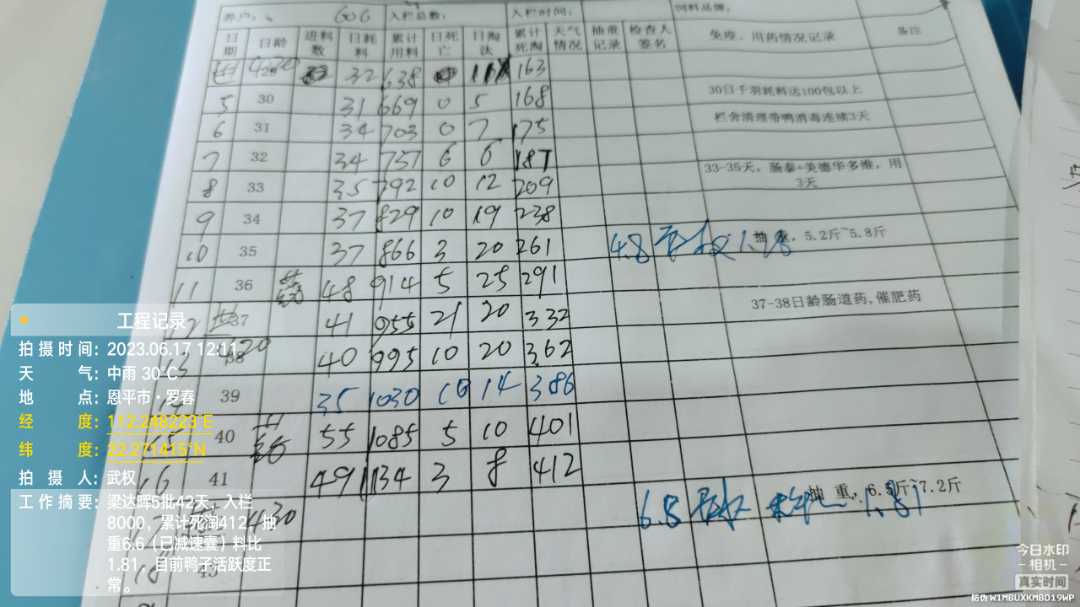 养户: 606 入栏总数: 入栏时间: 饲料品牌:
日期 日龄 进料数 日耗料 累计用料 日死亡 日淘汰 累计死淘 天气情况 抽重记录 检查人签名 免疫、用药情况记录 备注
32 638 11 163
5 30 31 669 0 5 168 30日千羽耗料达100包以上
6 31 34 703 0 7 175 栏舍清理带鸭消毒连续3天
7 32 34 737 6 6 187
8 33 35 792 10 12 209 33-35天，肠泰+美德华多维，用3天
9 34 37 829 10 19 238
10 35 37 866 3 20 261 4.8 抽重，5.2斤~5.8斤
11 36 48 914 5 25 291
12 37 41 955 21 20 332 37-38日龄肠道药，催肥药
13 38 40 995 10 20 362
39 35 1030 10 14 386
15 40 55 1085 5 10 401
16 41 49 1134 3 8 412
6.8 抽重，6.5斤~7.2斤 1.81
18 43
工程记录
拍摄时间：2023.06.17 12:11
天气：中雨 30°C
地点：恩平市·罗春
经度：112.248223°E
纬度：22.271415°N
拍摄人：武权
工作摘要：梁达晖5批42天，入栏
8000，累计死淘412，抽
重6.6（已减速囊）料比
1.81，目前鸭子活跃度正
常。
今日水印
-相机-
真实时间
防伪 W1MBUXKM8D19WP